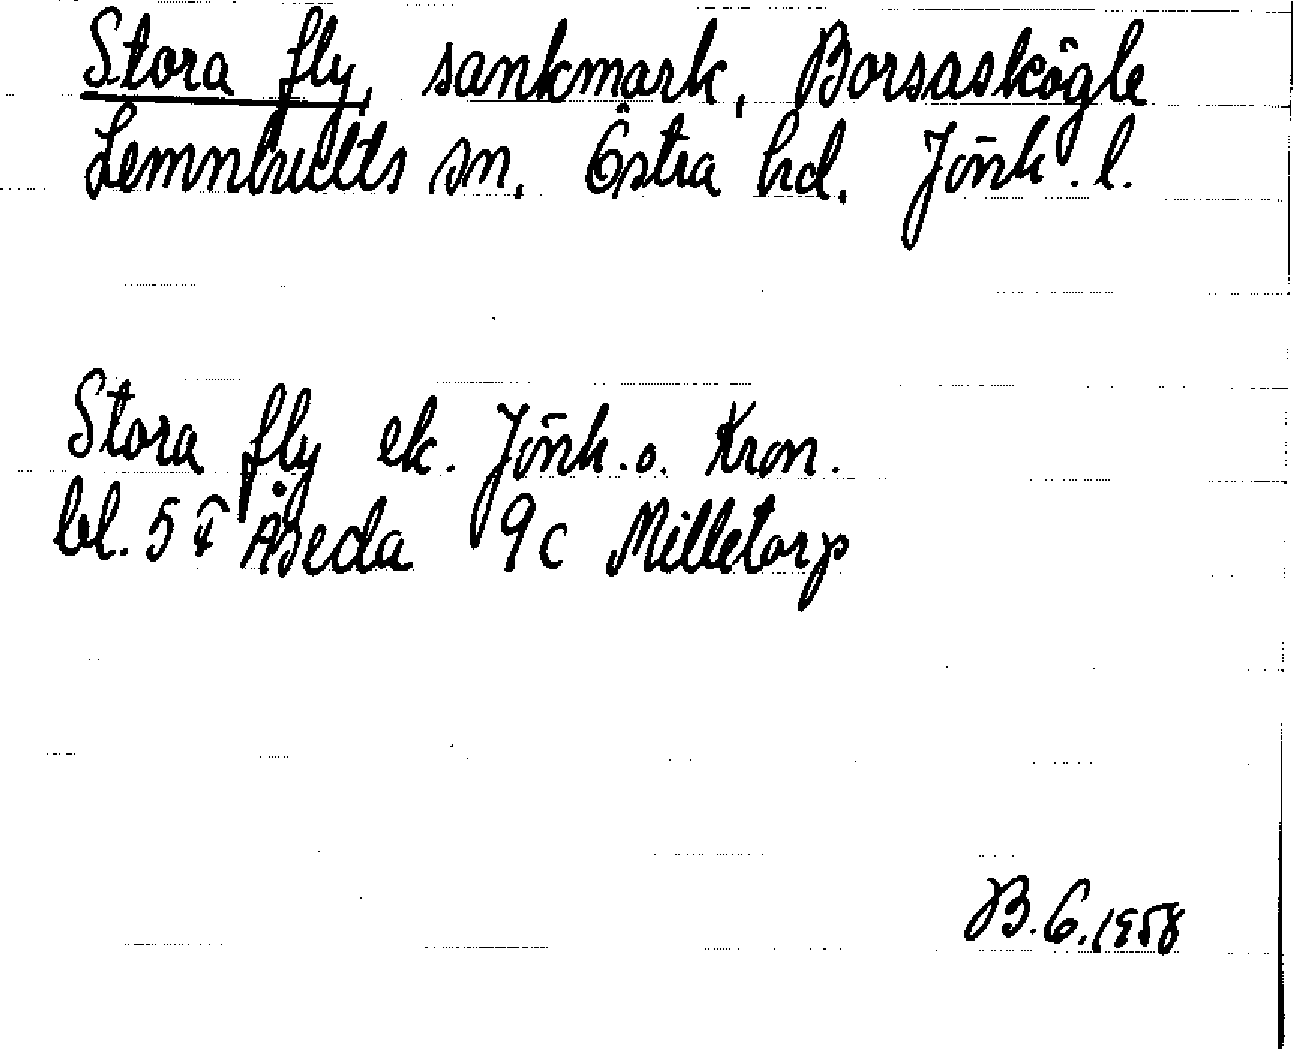 Stora fly, sankmark, Borsaskögle
Lemnhults sn. Östra hd. Jönk. l.
Stora fly ek. Jönk. o. Kron.
bl. 5 F Åseda 9 c Milletorp
B.G. 1958